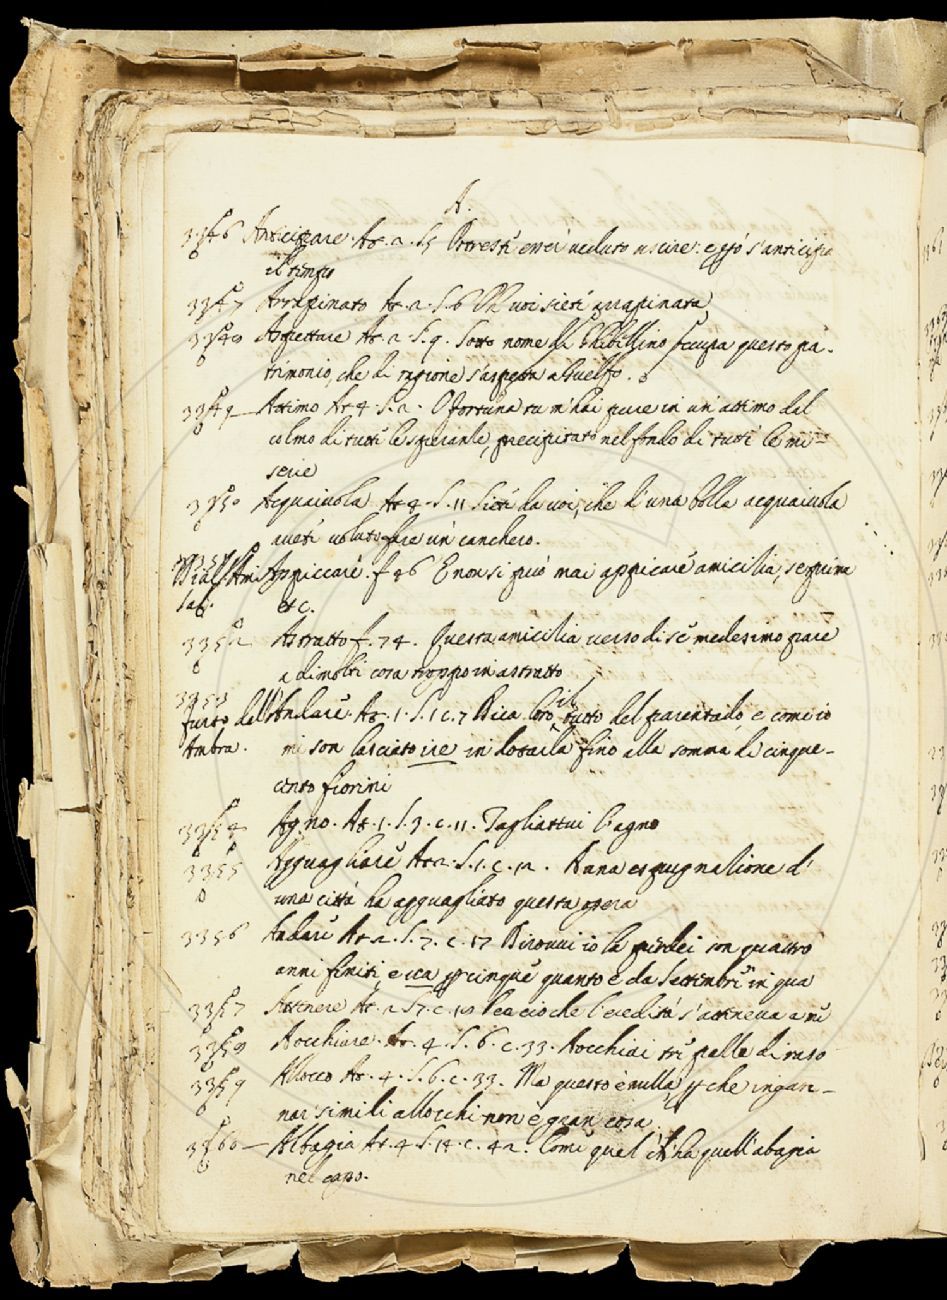 A.
3346 Anticipare. At. 2. S. 5 Potresti averci veduto uscire: e però s'anticipi
il tempo
3347 Arrapinato At. 2. S. 6 Oh voi sieti arrapinata
3348 Aspettare At. 2. S. 9. Sotto nome di Ghibellino occupa questo pa-
trimonio, che di ragione s'aspetta a Guelfo.
3349 Attimo At. 4. S. 2. O fortuna tu m'hai pure in un' attimo dal
colmo di tutte le speranze, precipitato nel fondo di tutte le mi-
serie
3350 Acquaiuola At. 4. S. 11 Sieti da voi, che d'una bolla acquaiuola
aveti voluto fare un canchero.
3351 Appiccare. f 26 E non si può mai appicare amicizia, se prima
etc.
3352 Astratto f. 74. Questa amicizia verso di sè medesimo pare
a di molti cosa troppo in astratto
3353
furto dell' Andare. At. 1. S. 1 c. 7 Dica loro il tutto del parentado, e come io
Ambra. mi son lasciato ire in dotarla fino alla somma di cinque-
cento fiorini
3354 Agno. At. 1. S. 3. c. 11. Tagliattui l'agno
3355 Agguagliare At. 2. S. 1. c. 12. A una espugnazione di
una città ha agguagliato questa opera
3356 Andare At. 2. S. 7. c. 17 io la perdei con quattro
anni finiti, e iva per cinque quanto è da Settembre in qua
3357 Attenere At. 2 S. 7. c. perciò che l'eredità s'atteneva a me
3358 Aocchiare. At. 4. S. 6. c. 33. Aocchiai tre palle di raso
3359 Allocco At. 4. S. 6. c. 33. Ma questo è nulla, perche ingan-
nar simili allocchi non è gran cosa
3360 Albagia At. 4 S. 14. c. 42. Come quel ha quell'abagia
nel capo.